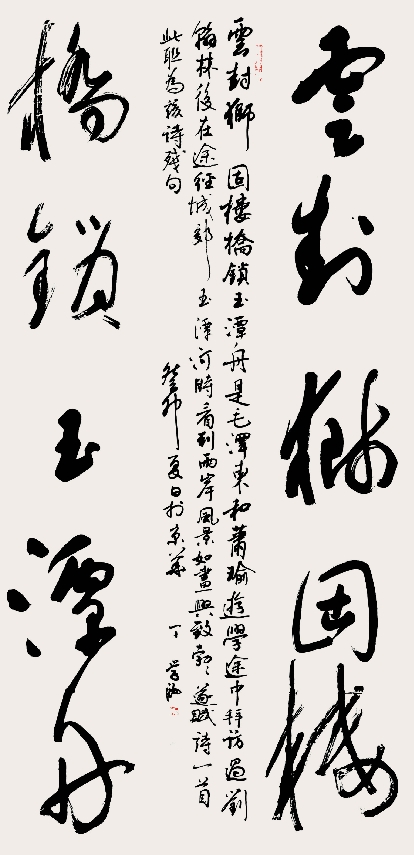 雲封獅固樓
橋鎖玉潭舟
雲封獅固樓橋鎖玉潭舟是毛澤東和蕭瑜遊學途中拜訪過劉
翰林後在途經城郊玉潭河時看到兩岸風景如畫興致勃勃遂賦詩一首
此聯為該詩殘句
癸卯夏日於京華丁